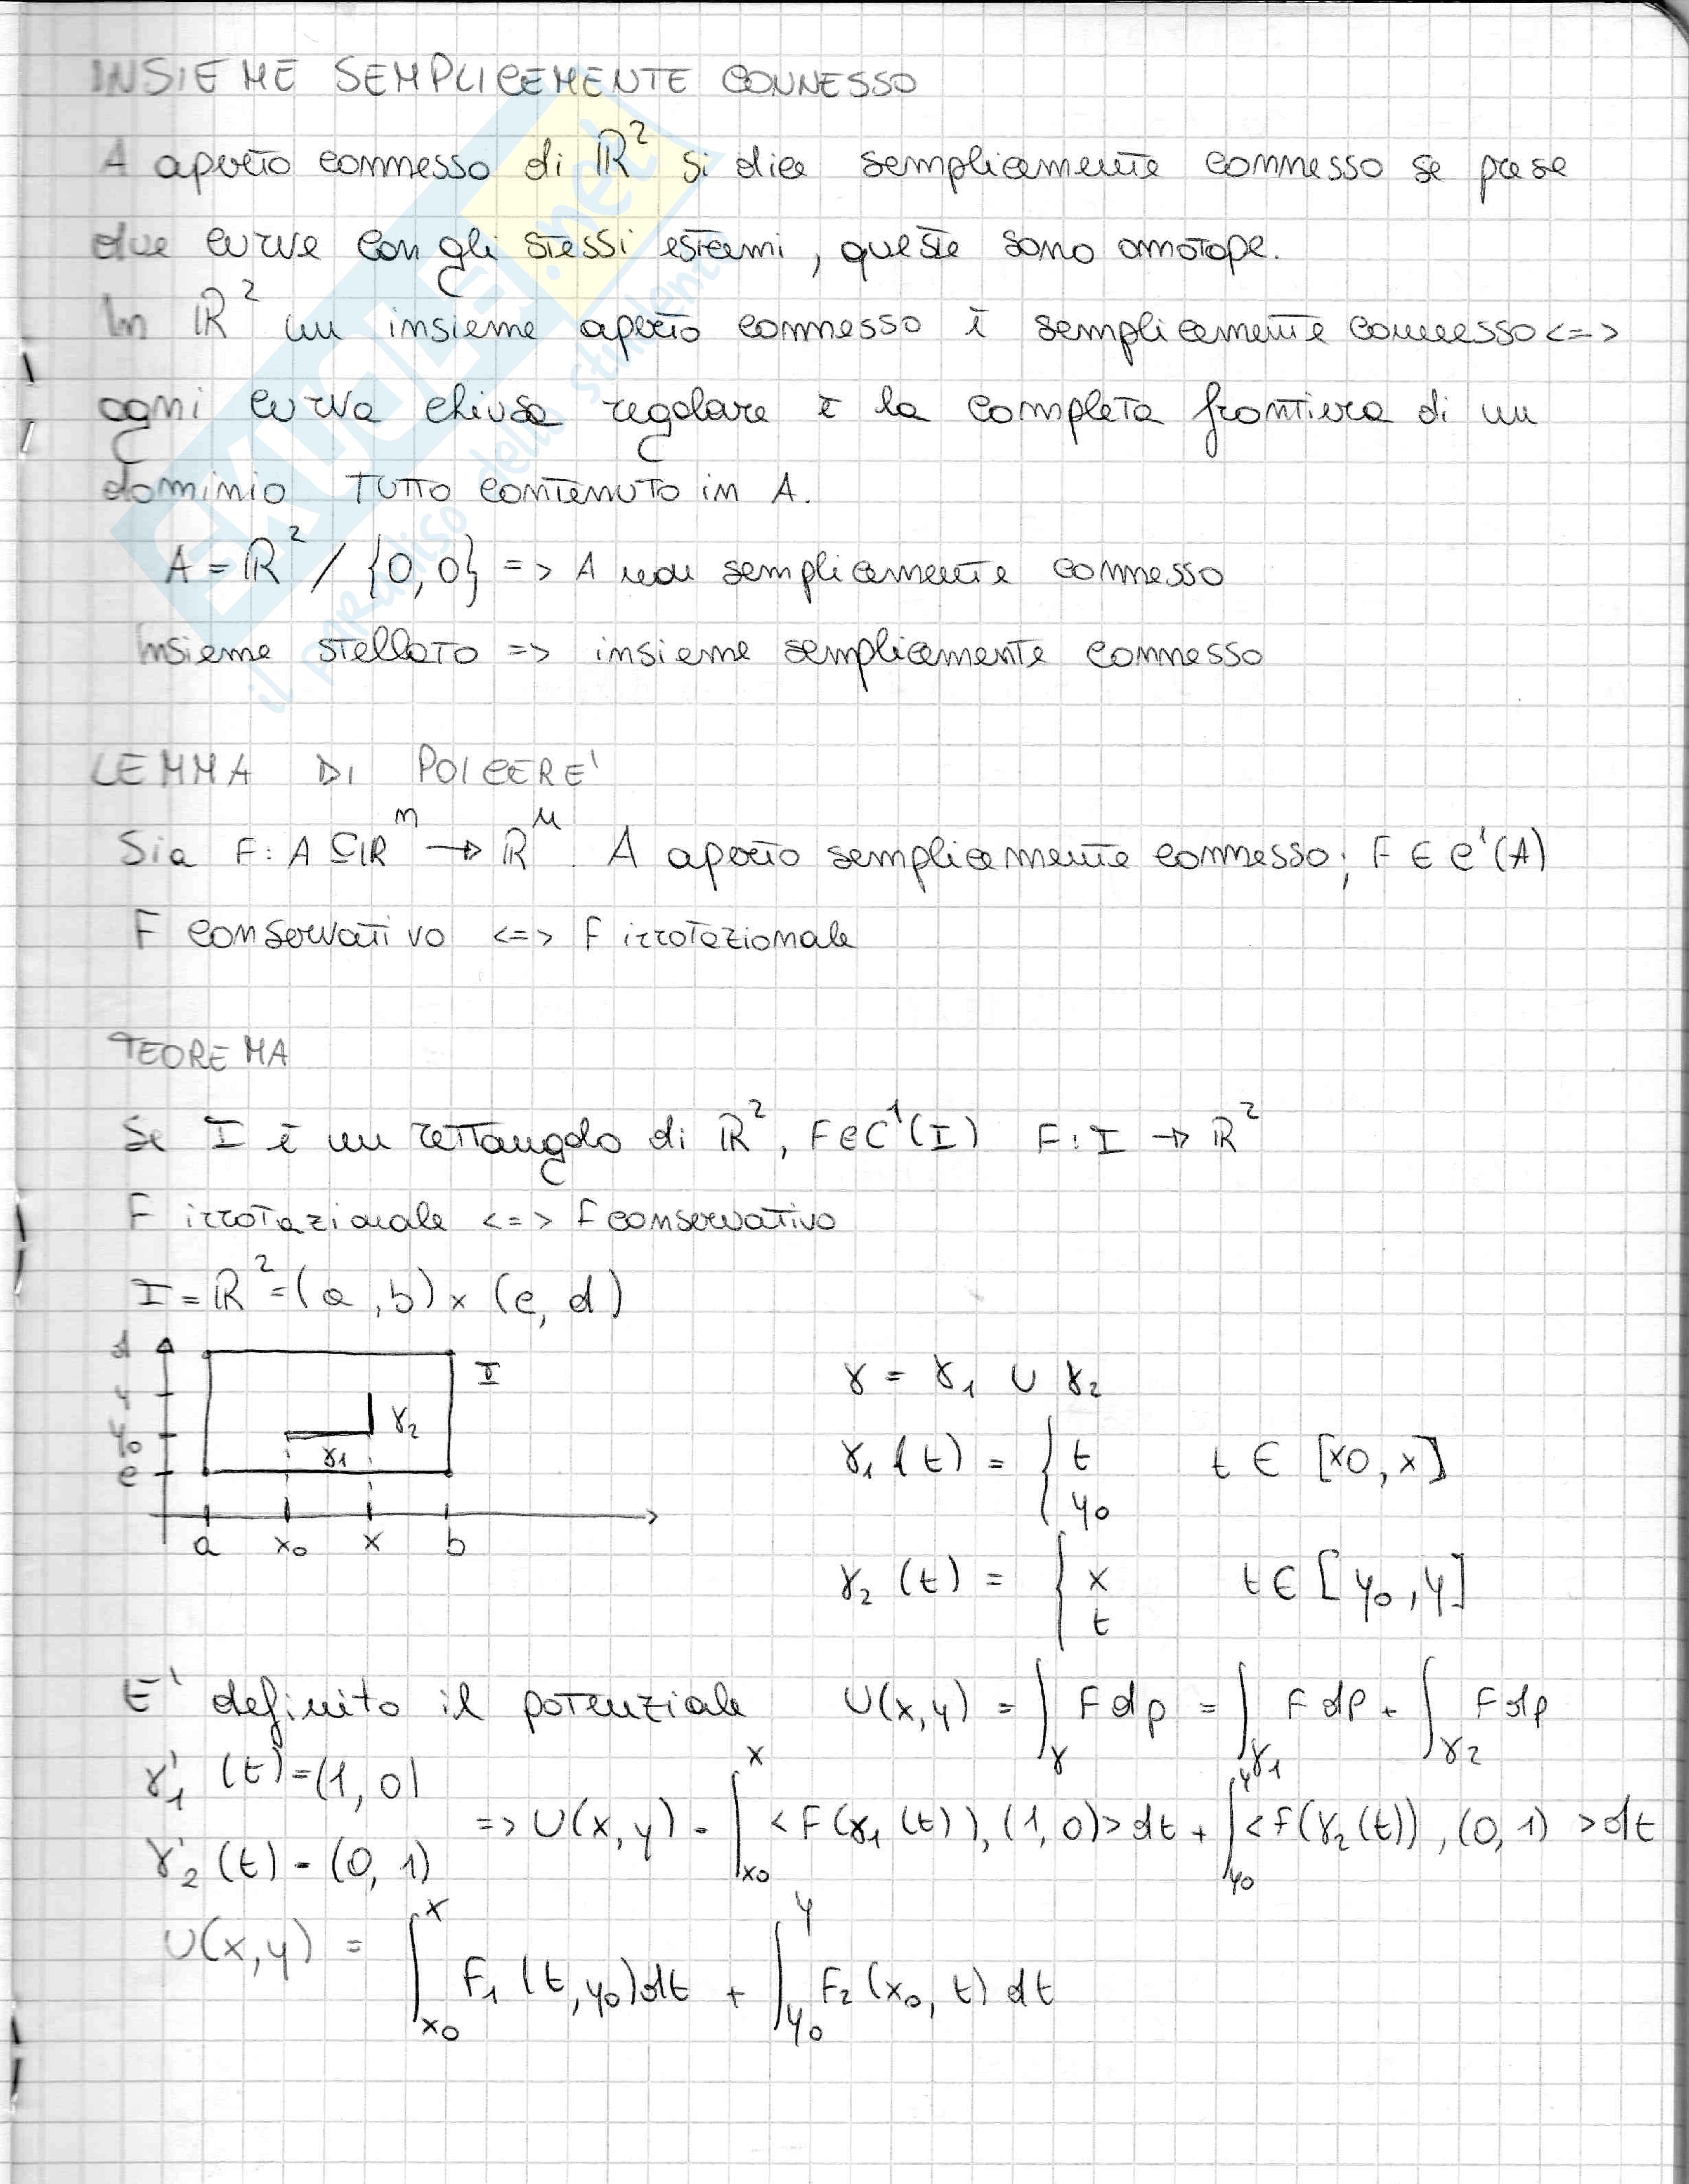 INSIEME SEMPLICEMENTE CONNESSO
A aperto connesso di ℝ² si dice semplicemente connesso se prese
due curve con gli stessi estremi, queste sono omotope.
In ℝ² un insieme aperto connesso è semplicemente connesso <=>
ogni curva chiusa regolare è la completa frontiera di un
dominio TUTTO contenuto in A.
A = ℝ² / {0,0} => A non semplicemente connesso
Insieme stellato => insieme semplicemente connesso
LEMMA DI POICERE'
Sia F: A ⊆ ℝⁿ → ℝⁿ. A aperto semplicemente connesso; F ∈ C¹(A)
F conservativo <=> F irrotazionale
TEOREMA
Se I è un rettangolo di ℝ², F∈C¹(I) F: I → ℝ²
F irrotazionale <=> F conservativo
I = ℝ² = (a,b) × (c,d)
d
y
y₀
c
I
γ₂
γ₁
a x₀ x b
γ = γ₁ ∪ γ₂
γ₁(t) = { t y₀ t ∈ [x0, x]
γ₂(t) = { x t t ∈ [y₀, y]
E' definito il potenziale U(x,y) = ∫_γ F dp = ∫_γ₁ F dp + ∫_γ₂ F dp
γ₁'(t) = (1,0)
γ₂'(t) = (0,1)
=> U(x,y) = ∫_x₀^x <F(γ₁(t)), (1,0)> dt + ∫_y₀^y <F(γ₂(t)), (0,1)> dt
U(x,y) = ∫_x₀^x F₁(t,y₀)dt + ∫_y₀^y F₂(x₀,t) dt
SKUOLA.net
il paradiso dello studente